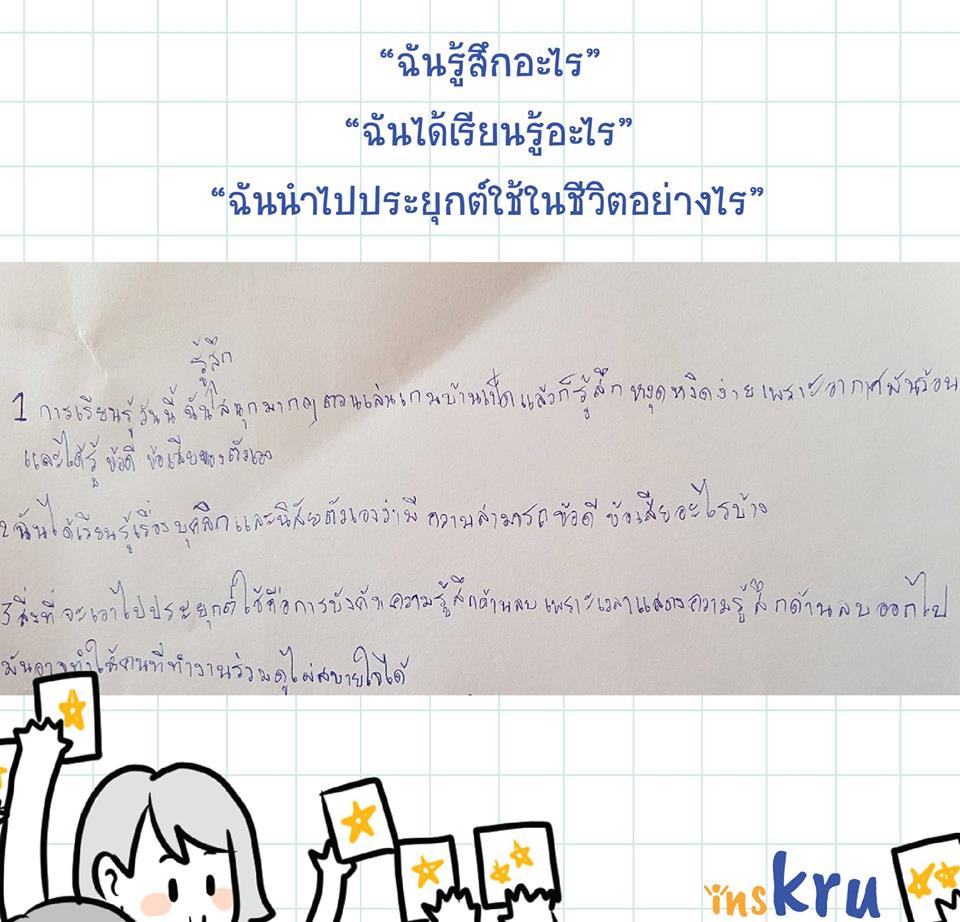 “ฉันรู้สึกอะไร”
“ฉันได้เรียนรู้อะไร”
“ฉันนำไปประยุกต์ใช้ในชีวิตอย่างไร”
รู้สึก
1 การเรียนรู้วันนี้ ฉันสนุกมากๆ ตอนเล่นเกม แล้วก็รู้สึก หงุดหงิดง่าย เพราะอากาศมันร้อน
และได้รู้ ข้อดี ข้อเสียของตัวเอง
2 ฉันได้เรียนรู้เรื่องบุคลิกและนิสัยตัวเองว่ามี ความสามารถข้อดี ข้อเสียอะไรบ้าง
3 สิ่งที่จะเอาไปประยุกต์ใช้คือการบังคับความรู้สึกด้านลบ เพราะเวลาแสดงความรู้สึกด้านลบออกไป
มันอาจทำให้คนที่ทำงานร่วมดูไม่สบายใจได้
inskru